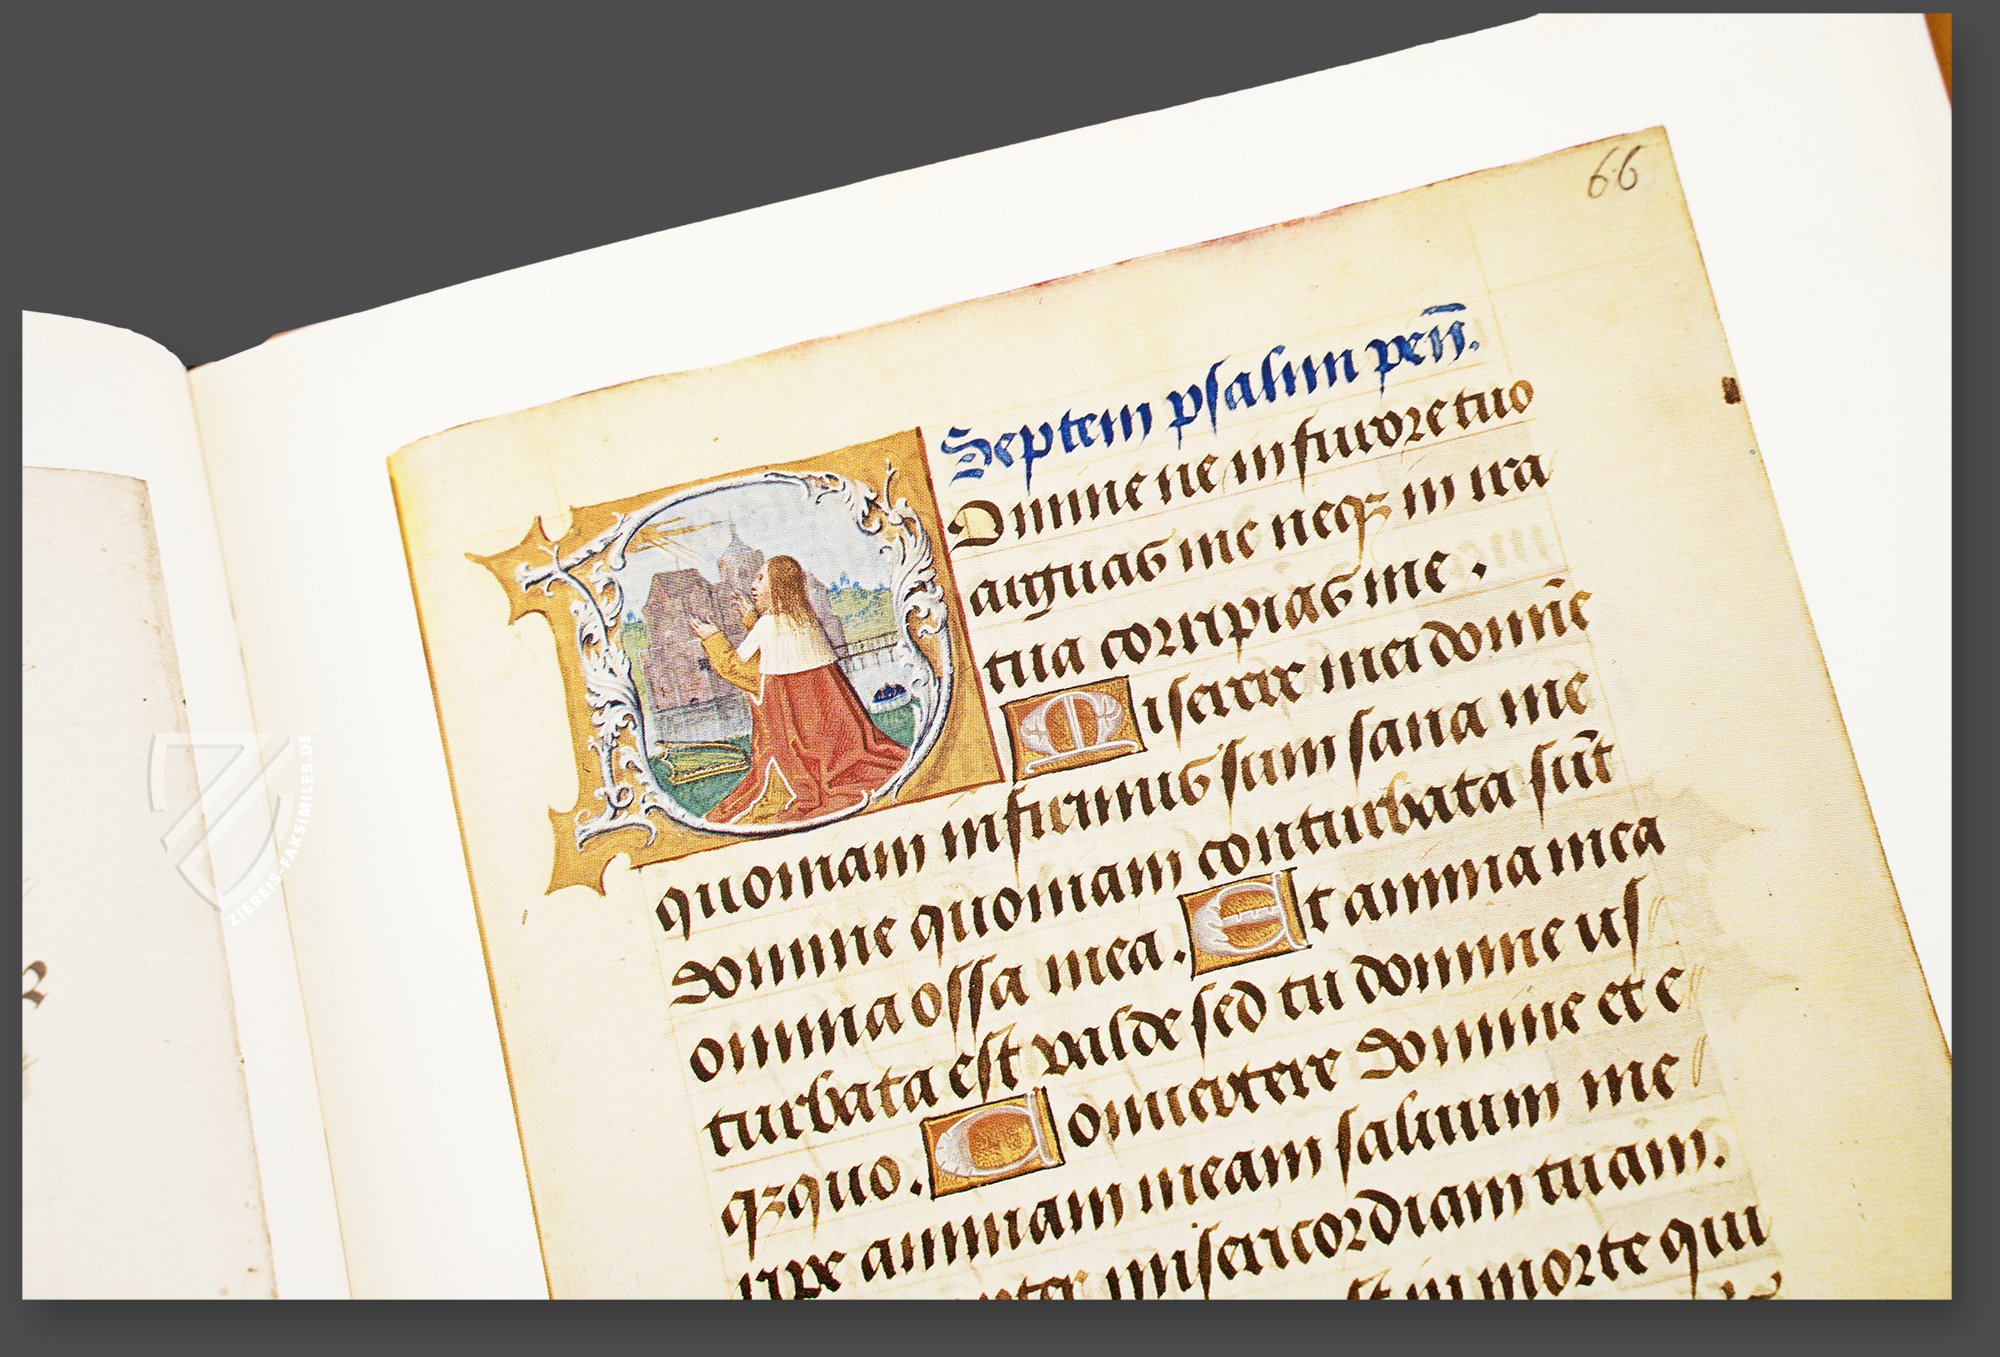 66
Septem psalmi peñ.
Domine ne in furore tuo
arguas me neqȝ in ira
tua corripias me .
Miserere mei domiñe
quoniam infirmus sum sana me
domine quoniam conturbata sūt
omnia ossa mea. Et anima mea
turbata est valde sed tu domine uſ
qȝquo. Conuertere domine et e
ripe animam meam saluum me
propter misericordiam tuam.
st in morte qui
ZIEREIS-FAKSIMILES.DE